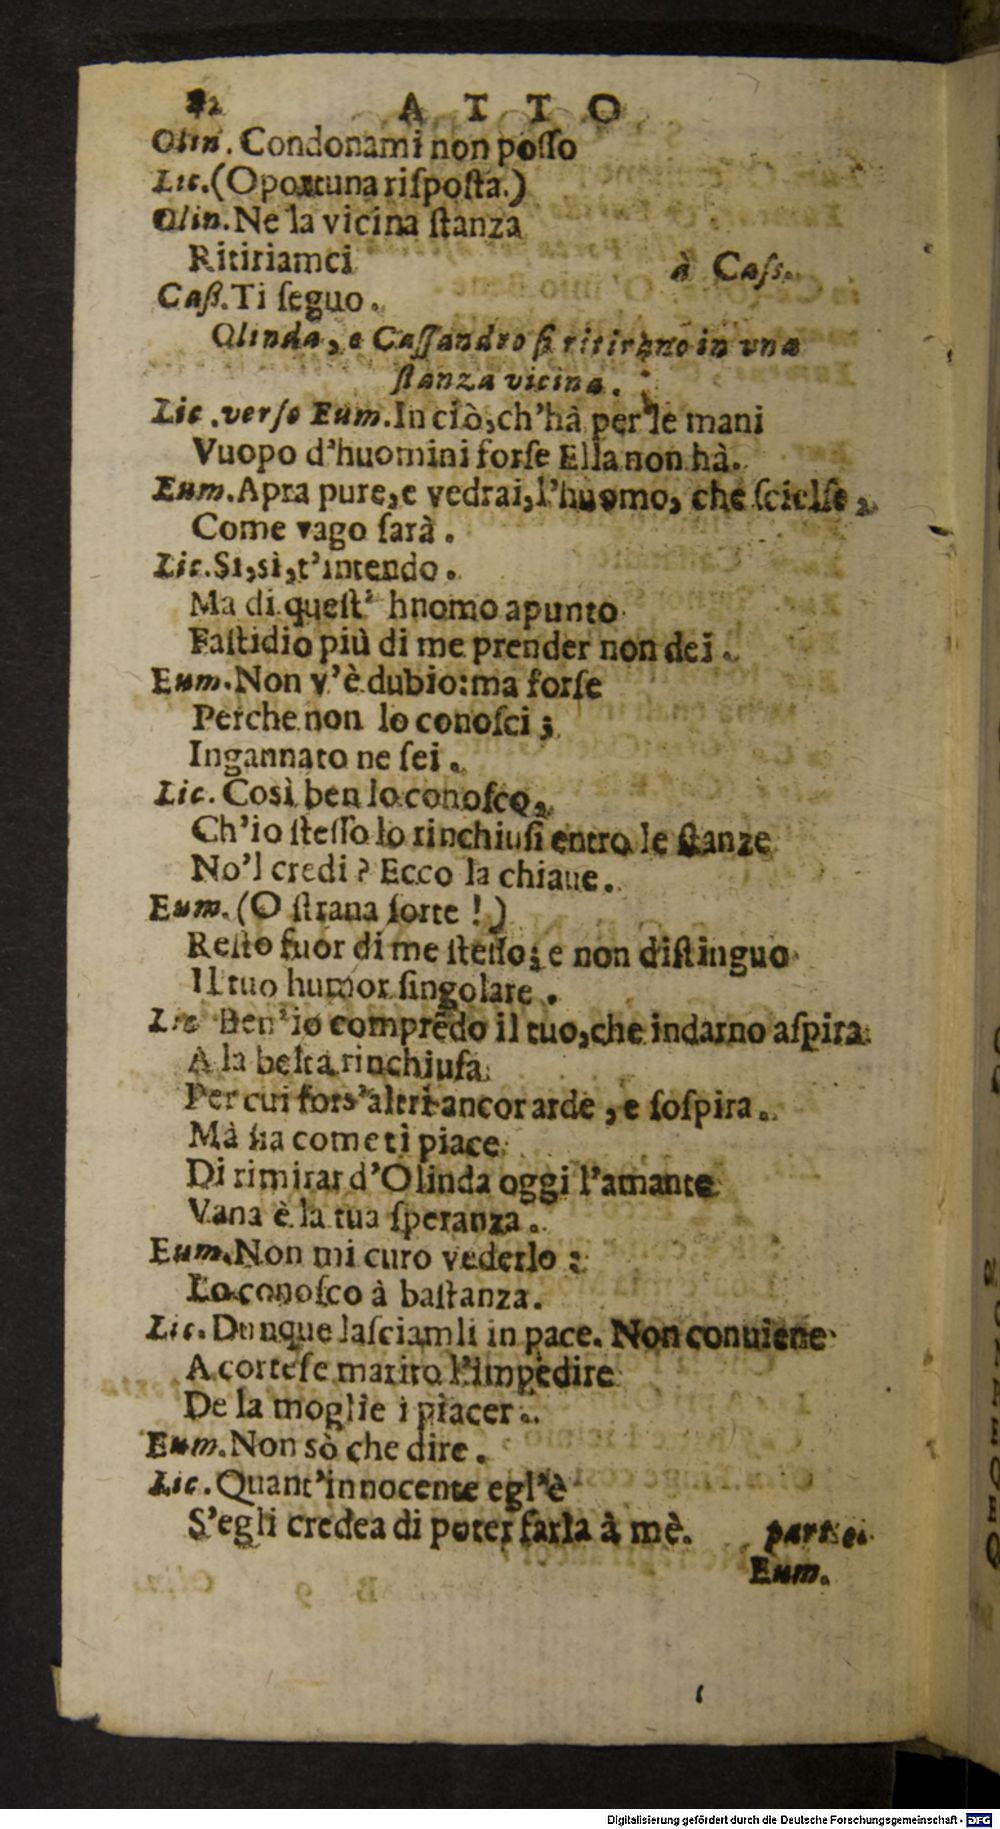 82 ATTO
Olin. Condonami non poſſo
Lic.(Oportuna riſpoſta.)
Olin.Ne la vicina ſtanza
Ritiriamci à Caſs.
Caß.Ti ſeguo.
Olinda, e Caſſandro ſi ritirano in vna
ſtanza vicina.
Lic.verſo Eum.In ciò,ch'hà per le mani
Vuopo d'huomini forſe Ella non hà.
Eum.Apra pure,e vedrai,l'huomo, che ſcielſe,
Come vago ſarà.
Lic.Si,sì,t'intendo.
Ma di queſt' hnomo apunto
Faſtidio più di me prender non dei.
Eum.Non v'è dubio:ma forſe
Perche non lo conoſci;
Ingannato ne ſei.
Lic. Così ben lo conoſco,
Ch'io ſteſſo lo rinchiuſi entro le ſtanze
No'l credi? Ecco la chiaue.
Eum.(O ſtrana ſorte!)
Reſto fuor di me ſteſſo; e non diſtinguo
Il tuo humor ſingolare.
Lic Ben'io comprẽdo il tuo,che indarno aſpira
A la beltà rinchiuſa
Per cui fors'altri ancor arde, e ſoſpira.
Mà ſia come ti piace
Di rimirar d'Olinda oggi l'amante
Vana è la tua ſperanza.
Eum.Non mi curo vederlo:
Lo conoſco à baſtanza.
Lic.Dunque laſciamli in pace. Non conuiene
A corteſe marito l'impedire
De la moglie i piacer.
Eum.Non sò che dire.
Lic.Quant'innocente egl'è
S'egli credea di poter farla à mè. partei
Eum.
Digitalisierung gefördert durch die Deutsche Forschungsgemeinschaft - DFG